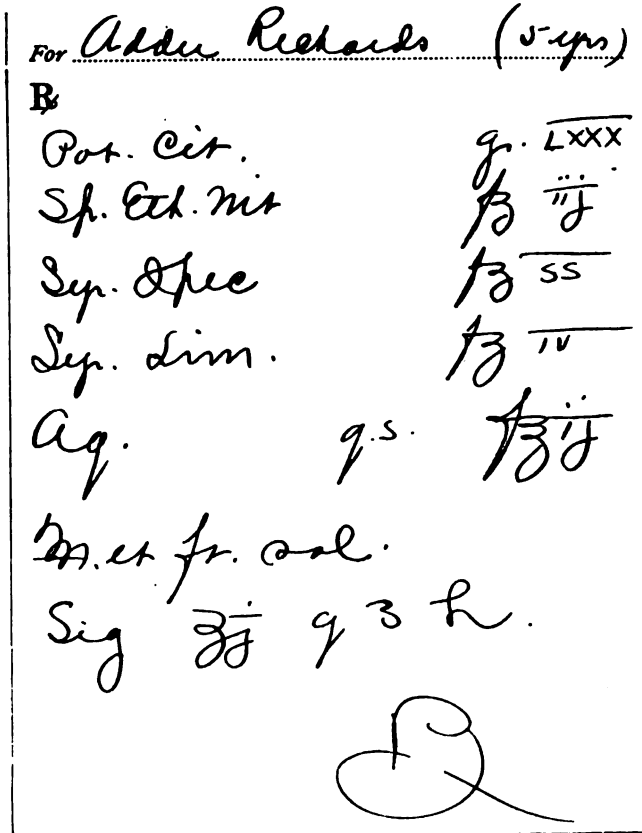 For Addie Richards (5 yrs)
℞
Pot. Cit. gr. LXXX
Sp. Eth. Nit fʒ iij
Syr. Ipec fʒ ss
Syr. Lim. fʒ iv
Aq. q.s. f℥ ij
M. et ft. sol.
Sig ʒj q 3 h.